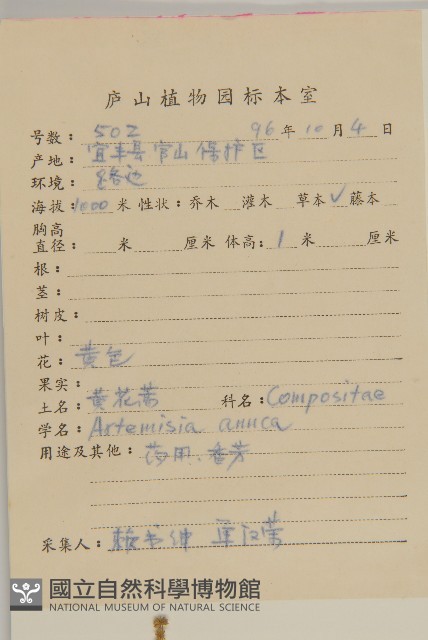 庐山植物园标本室
号数：502 96年10月4日
产地：宜丰县官山保护区
环境：路边
海拔：1000米 性状：乔木 灌木 草本✓藤本
胸高
直径： 米 厘米 体高：1米 厘米
根：
茎：
树皮：
叶：
花：黄色
果实：
土名：黄花蒿 科名：Compositae
学名：Artemisia annua
用途及其他：药用、香芳
采集人：赖书绅
國立自然科學博物館
NATIONAL MUSEUM OF NATURAL SCIENCE